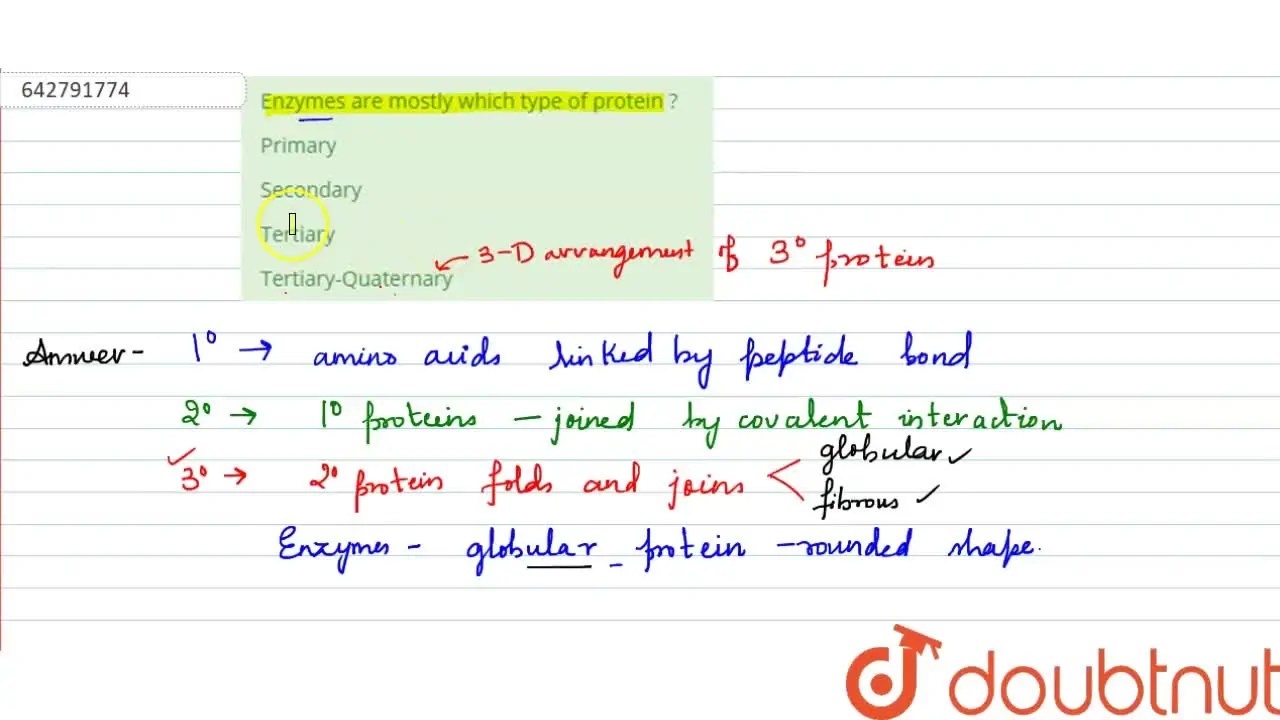 642791774
Enzymes are mostly which type of protein ?
Primary
Secondary
Tertiary
Tertiary-Quaternary
3-D arrangement of 3° protein
Answer- 1° → amino acids linked by peptide bond
2° → 1° proteins - joined by covalent interaction
3° → 2° protein folds and joins
globular
fibrous
Enzymes - globular protein - rounded shape.
doubtnut